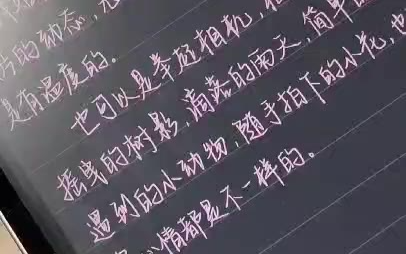 的动态，
是有温度的。
也可以是举起相机，
摇曳的树影，滴落的雨天，简单
遇到的小动物，随手拍下的小花，也
心情都是不一样的。